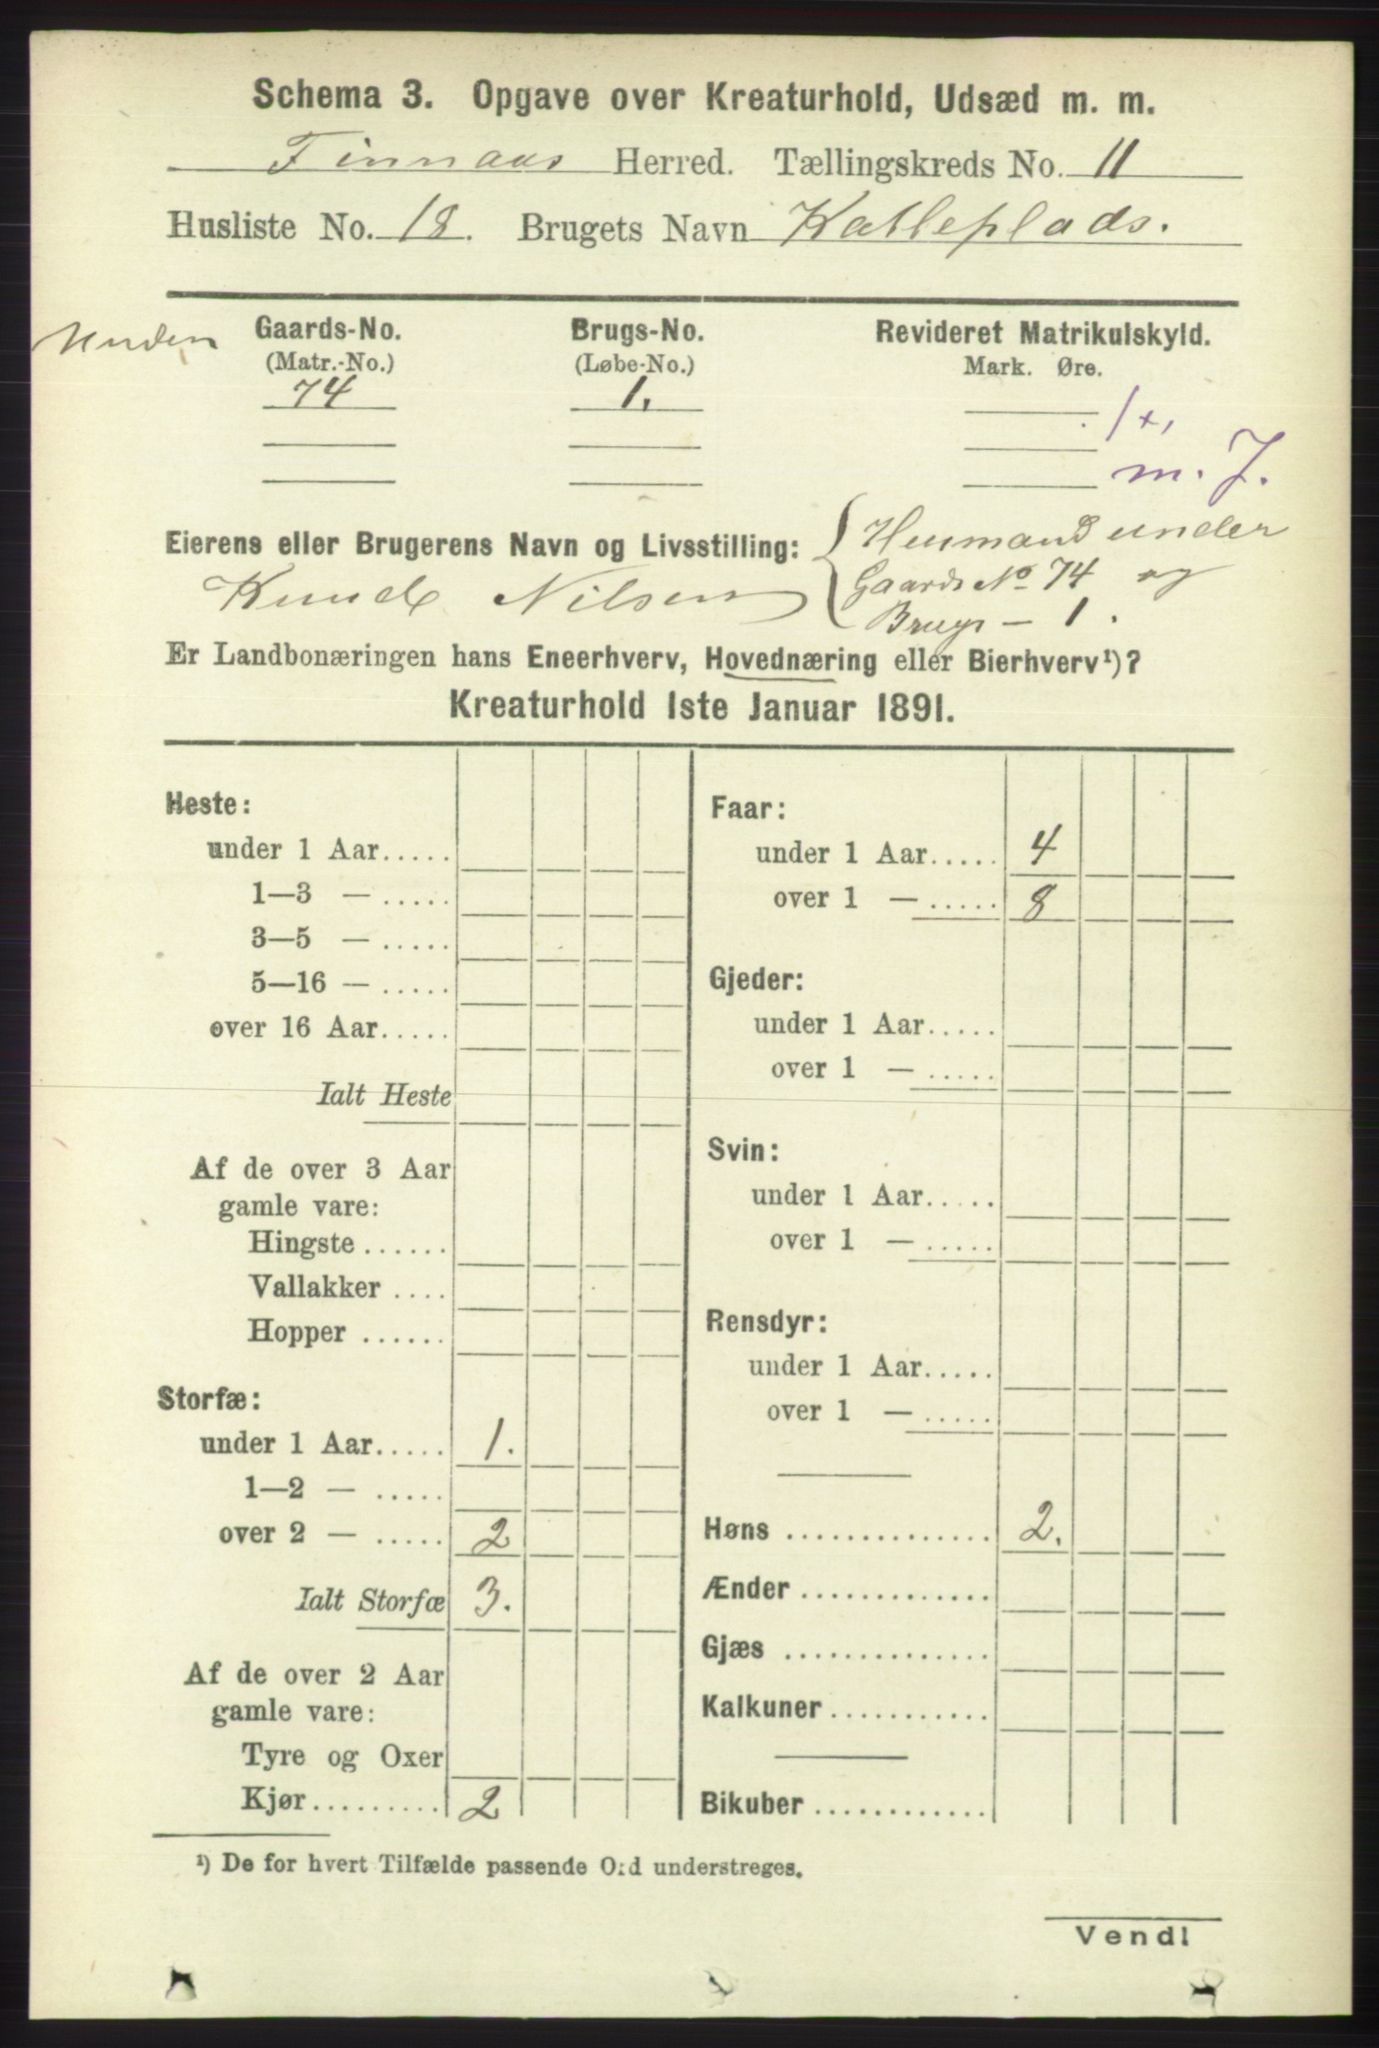 Schema 3. Opgave over Kreaturhold, Udsæd m. m.
Finnaas Herred. Tællingskreds No. 11
Husliste No. 18. Brugets Navn Kalleplads.
Under
Gaards-No. Brugs-No. Revideret Matrikulskyld.
(Matr.-No.) (Løbe-No.) Mark. Øre.
74 1.
m. J.
Eierens eller Brugerens Navn og Livsstilling: Husmand under
Knud Nilsen Gaards No 74 og
Brugs — 1.
Er Landbonæringen hans Eneerhverv, Hovednæring eller Bierhverv¹)?
Kreaturhold 1ste Januar 1891.
Heste:
under 1 Aar.....
1—3 — .....
3—5 — .....
5—16 — .....
over 16 Aar.....
Ialt Heste
Af de over 3 Aar
gamle vare:
Hingste ......
Vallakker ....
Hopper ......
Storfæ:
under 1 Aar..... 1.
1—2 — .....
over 2 — ..... 2
Ialt Storfæ 3.
Af de over 2 Aar
gamle vare:
Tyre og Oxer
Kjør......... 2
Faar:
under 1 Aar..... 4
over 1 — ..... 8
Gjeder:
under 1 Aar.....
over 1 — .....
Svin:
under 1 Aar.....
over 1 — .....
Rensdyr:
under 1 Aar.....
over 1 — .....
Høns .............. 2.
Ænder .............
Gjæs ..............
Kalkuner ...........
Bikuber ............
¹) De for hvert Tilfælde passende Ord understreges.
Vend!